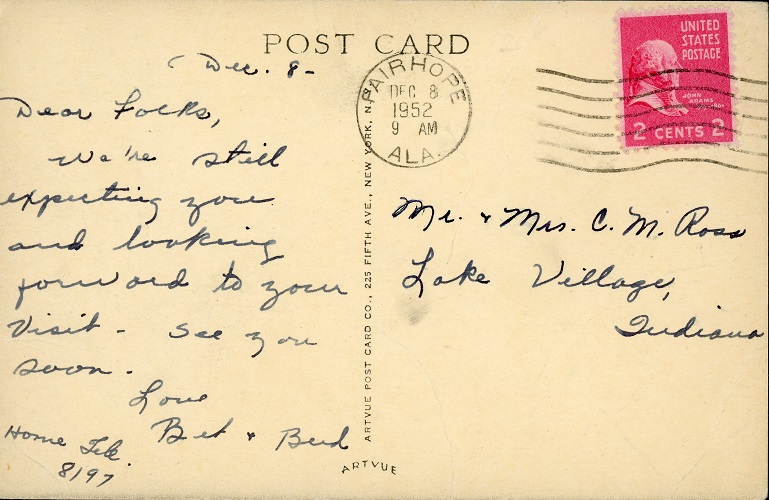 POST CARD
Dec. 8-
Dear Folks,
We're still
expecting you
and looking
forward to your
visit - See you
soon.
Love
Bet & Bud
Home Tele.
8197
FAIRHOPE
DEC 8
1952
9 AM
ALA.
UNITED
STATES
POSTAGE
JOHN
ADAMS
2 CENTS 2
Mr. & Mrs. C. M. Ross
Lake Village,
Indiana
ARTVUE POST CARD CO., 225 FIFTH AVE., NEW YORK, N.
ARTVUE